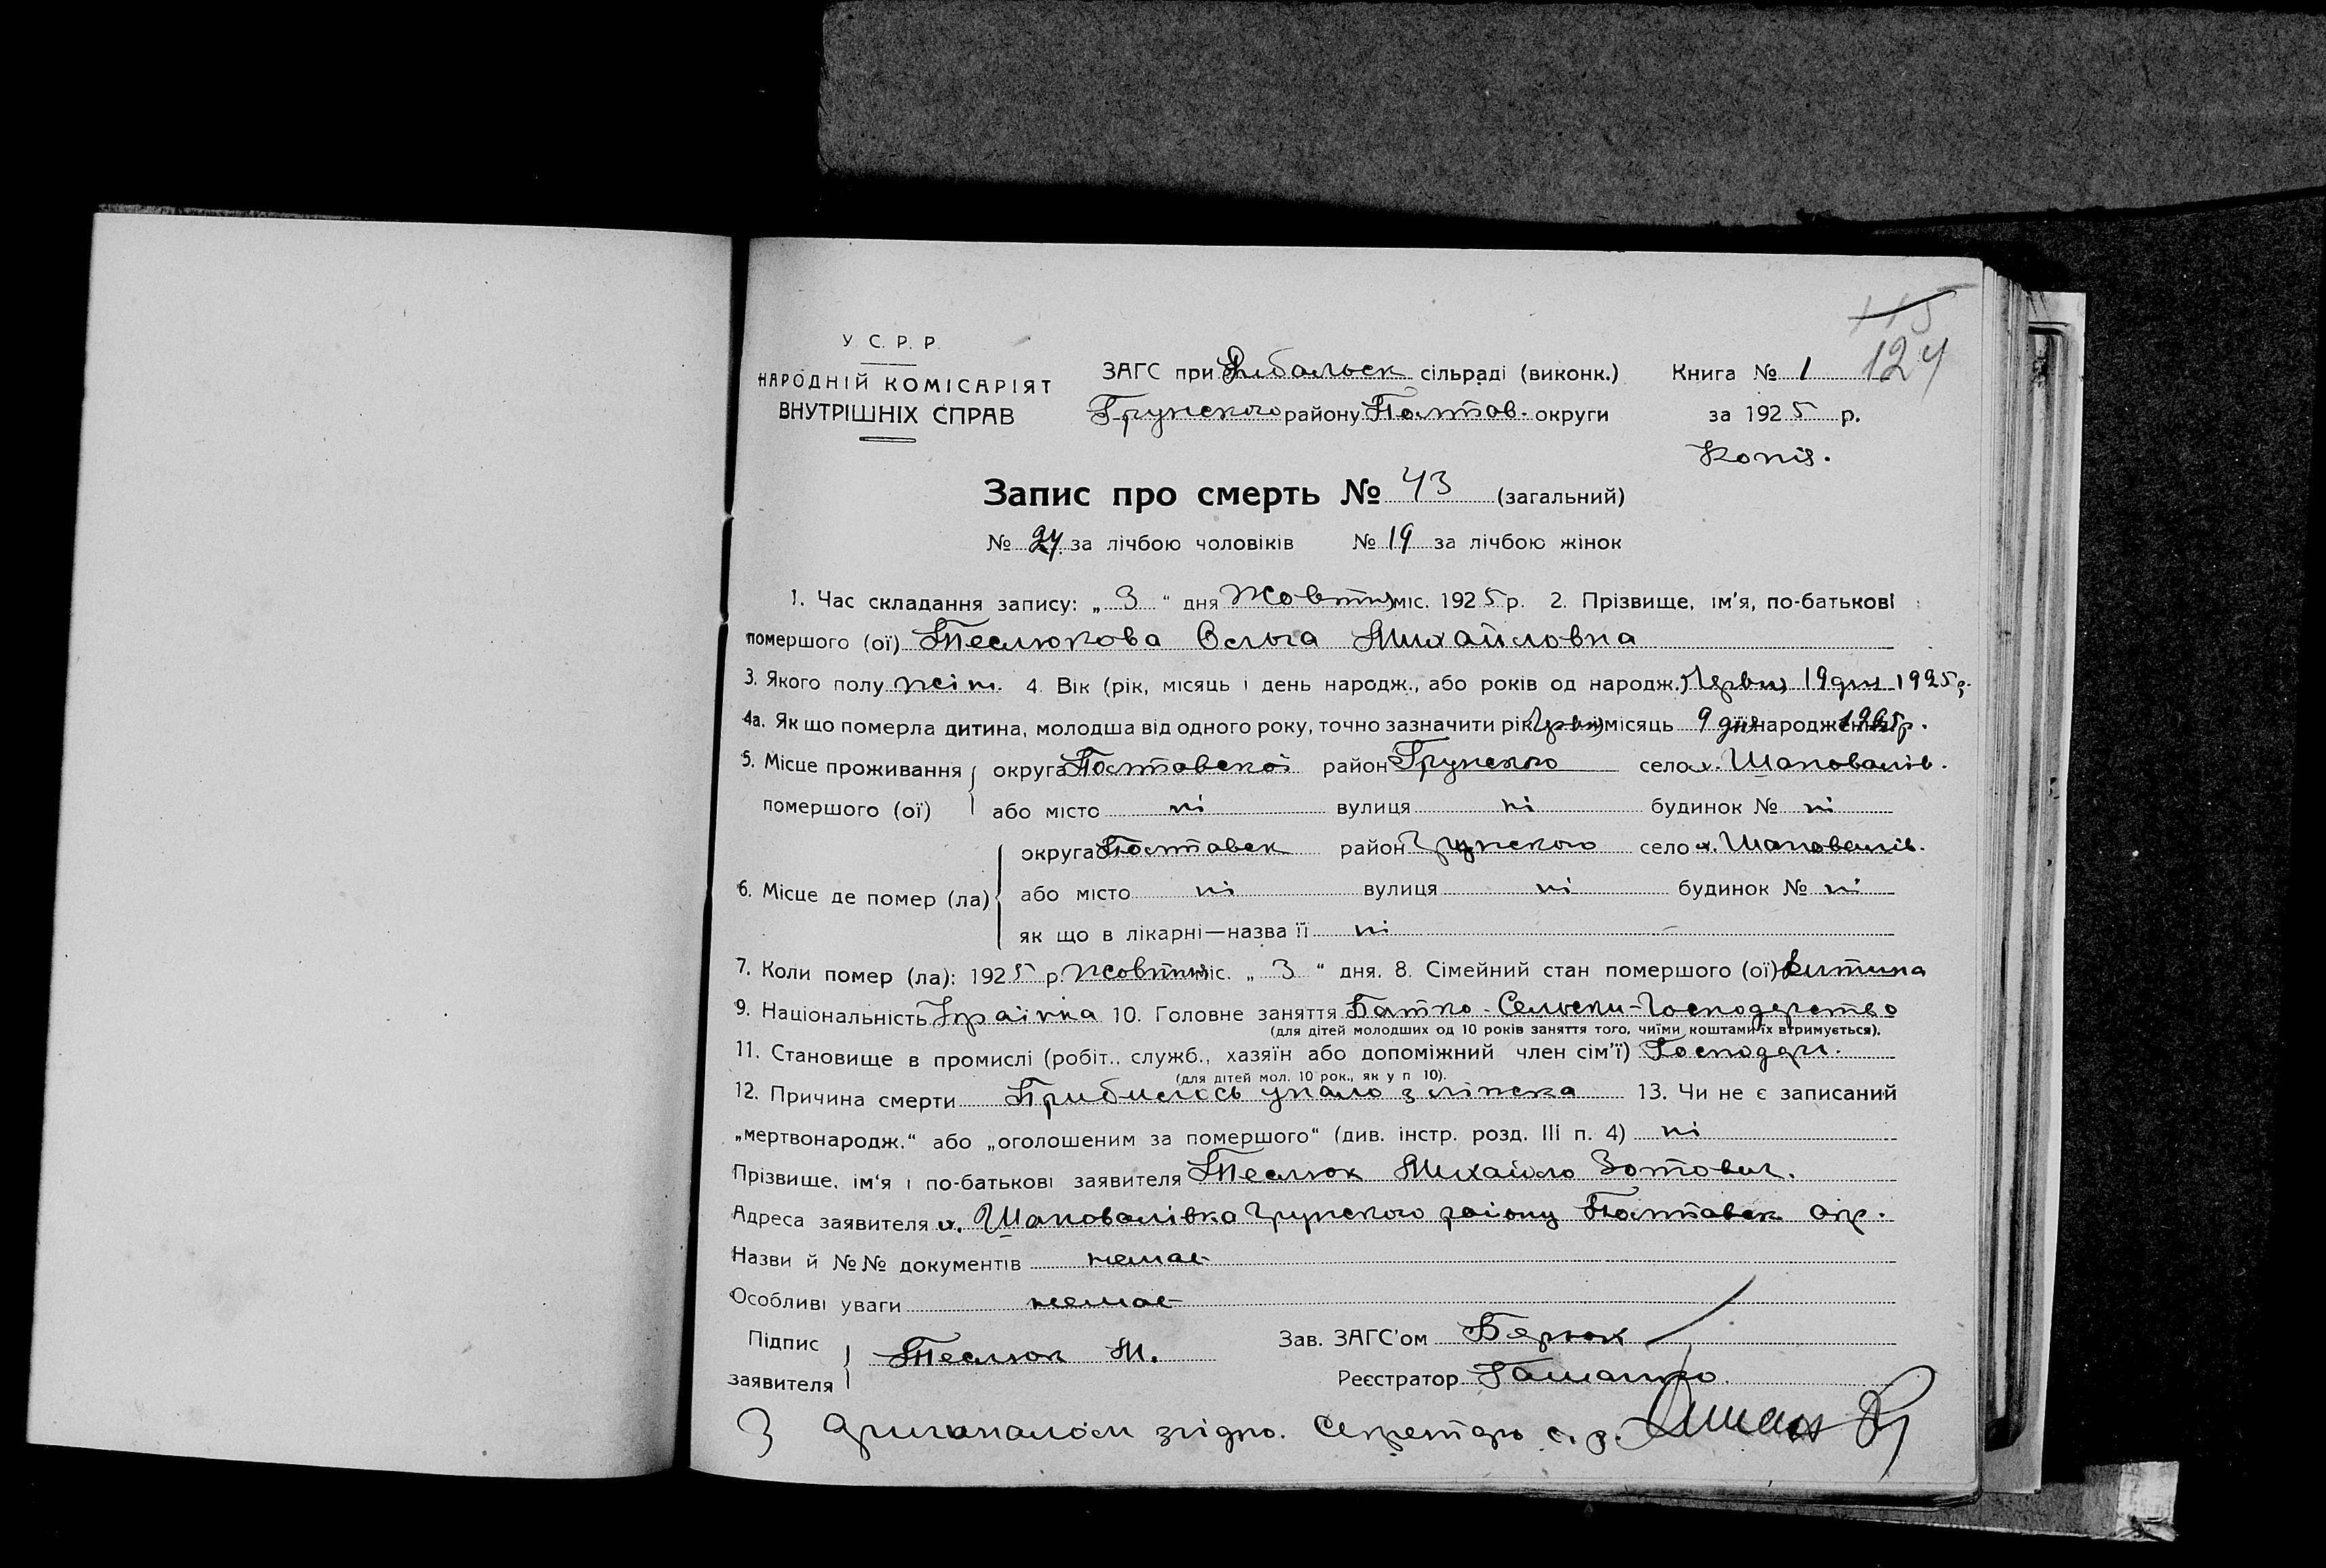 115
124
У. С. Р. Р.
НАРОДНІЙ КОМІСАРІЯТ
ВНУТРІШНІХ СПРАВ
ЗАГС при Рибальск сільраді (виконк.)
Грунского району Полтав. округи
Книга № 1
за 1925 р.
Копія.
Запис про смерть № 43 (загальний)
№ 24 за лічбою чоловіків № 19 за лічбою жінок
1. Час складання запису: „ 3 “ дня Жовтня міс. 1925 р. 2. Прізвище, ім'я, по-батькові
помершого (ої) Теслюкова Ольга Михайловна
3. Якого полу жін. 4. Вік (рік, місяць і день народж., або років од народж.) Червня 19 дня 1925 р.
4а. Як що померла дитина, молодша від одного року, точно зазначити рік Червня місяць 9 дня народження 1925 р.
5. Місце проживання округа Полтавскої район Грунского село х. Шаповалів.
помершого (ої) або місто ні вулиця ні будинок № ні
округа Полтавск район Грунского село х. Шаповалів.
6. Місце де помер (ла) або місто ні вулиця ні будинок № ні
як що в лікарні—назва її ні
7. Коли помер (ла): 1925 р. Жовтня міс. „ 3 “ дня. 8. Сімейний стан помершого (ої) Дитина
9. Національність Украінка 10. Головне заняття Батко - Сельски-Господарство
(для дітей молодших од 10 років заняття того, чиїми коштами їх втримується).
11. Становище в промислі (робіт., служб., хазяїн або допоміжний член сім'ї) Господарь.
(для дітей мол. 10 рок., як у п 10).
12. Причина смерти Прибилось упало з ліжка 13. Чи не є записаний
„мертвонародж.“ або „оголошеним за помершого“ (див. інстр. розд. III п. 4) ні
Прізвище, ім'я і по-батькові заявителя Теслюк Михайло Зотович.
Адреса заявителя х. Шаповалівка Грунского району Полтавск окр.
Назви й №№ документів немає
Особливі уваги немає
Підпис
заявителя Теслюк М.
Зав. ЗАГС'ом Бернок
Реєстратор Гаманко.
З оригиналом згідно. Секретарь с. р.